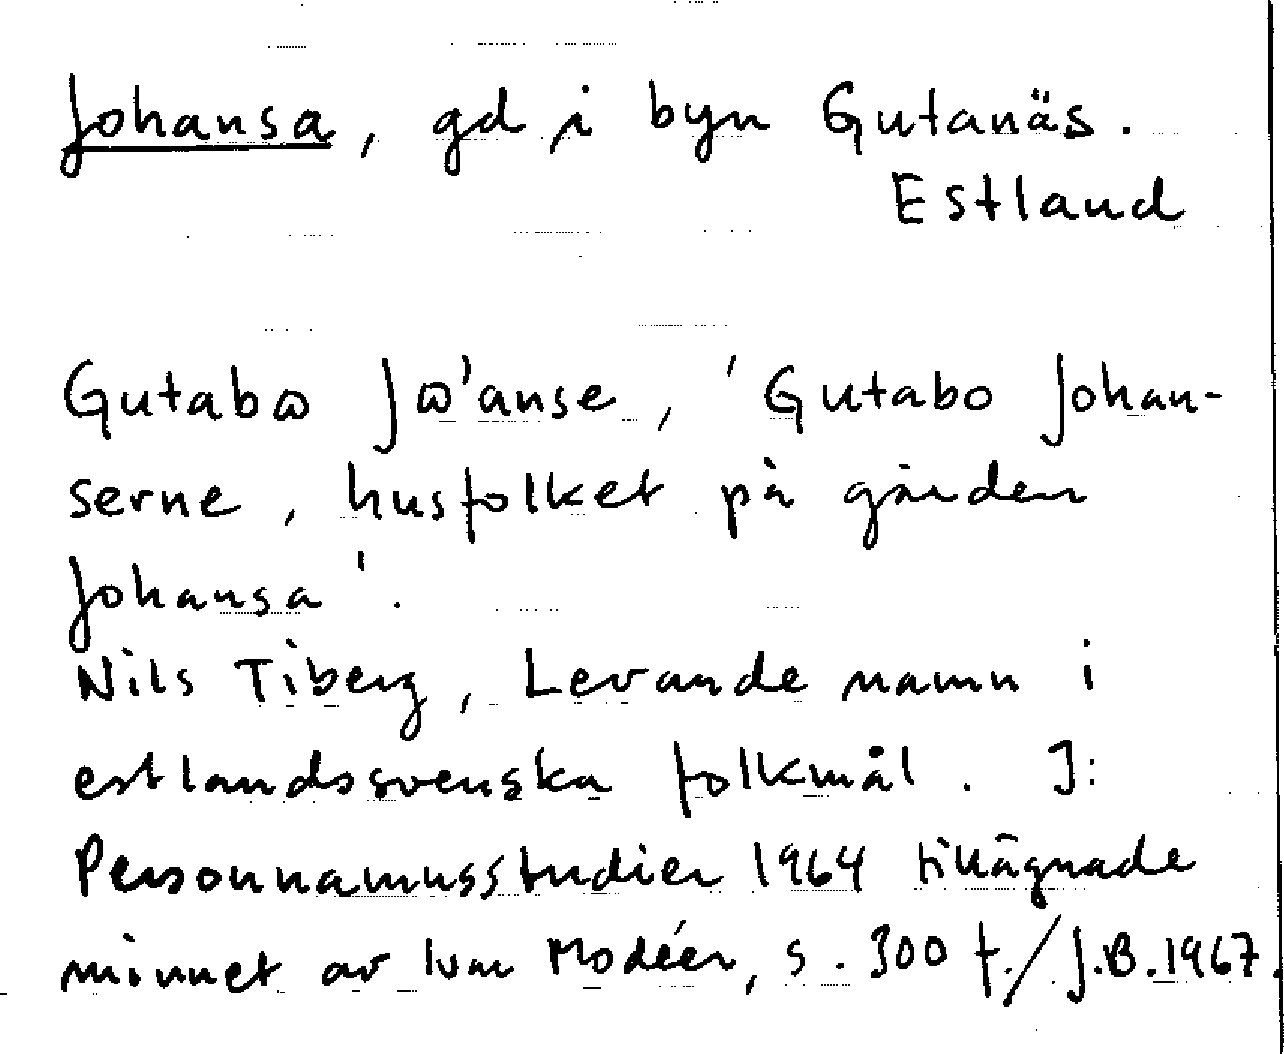 Johansa, gd i byn Gutanäs.
Estland
Gutabɷ Jɷ'anse, 'Gutabo Johan-
serne, husfolket på gården
Johansa'.
Nils Tiberg, Levande namn i
estlandssvenska folkmål. I:
Personnamnsstudier 1964 tillägnade
minnet av Ivar Modéer, s. 300 f./J.B.1967.